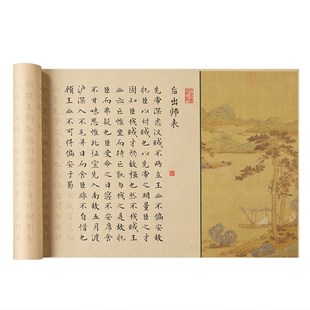 后出师表
先帝深虑汉贼不两立王业不偏安故
托臣以讨贼也以先帝之明量臣之才
故知臣伐贼才弱敌强也然不伐贼王
业亦亡惟坐而待亡孰与伐之是故托
臣而弗疑也臣受命之日寝不安席食
不甘味思惟北征宜先入南故五月渡
泸深入不毛并日而食臣非不自惜也
顾王业不可得偏安于蜀